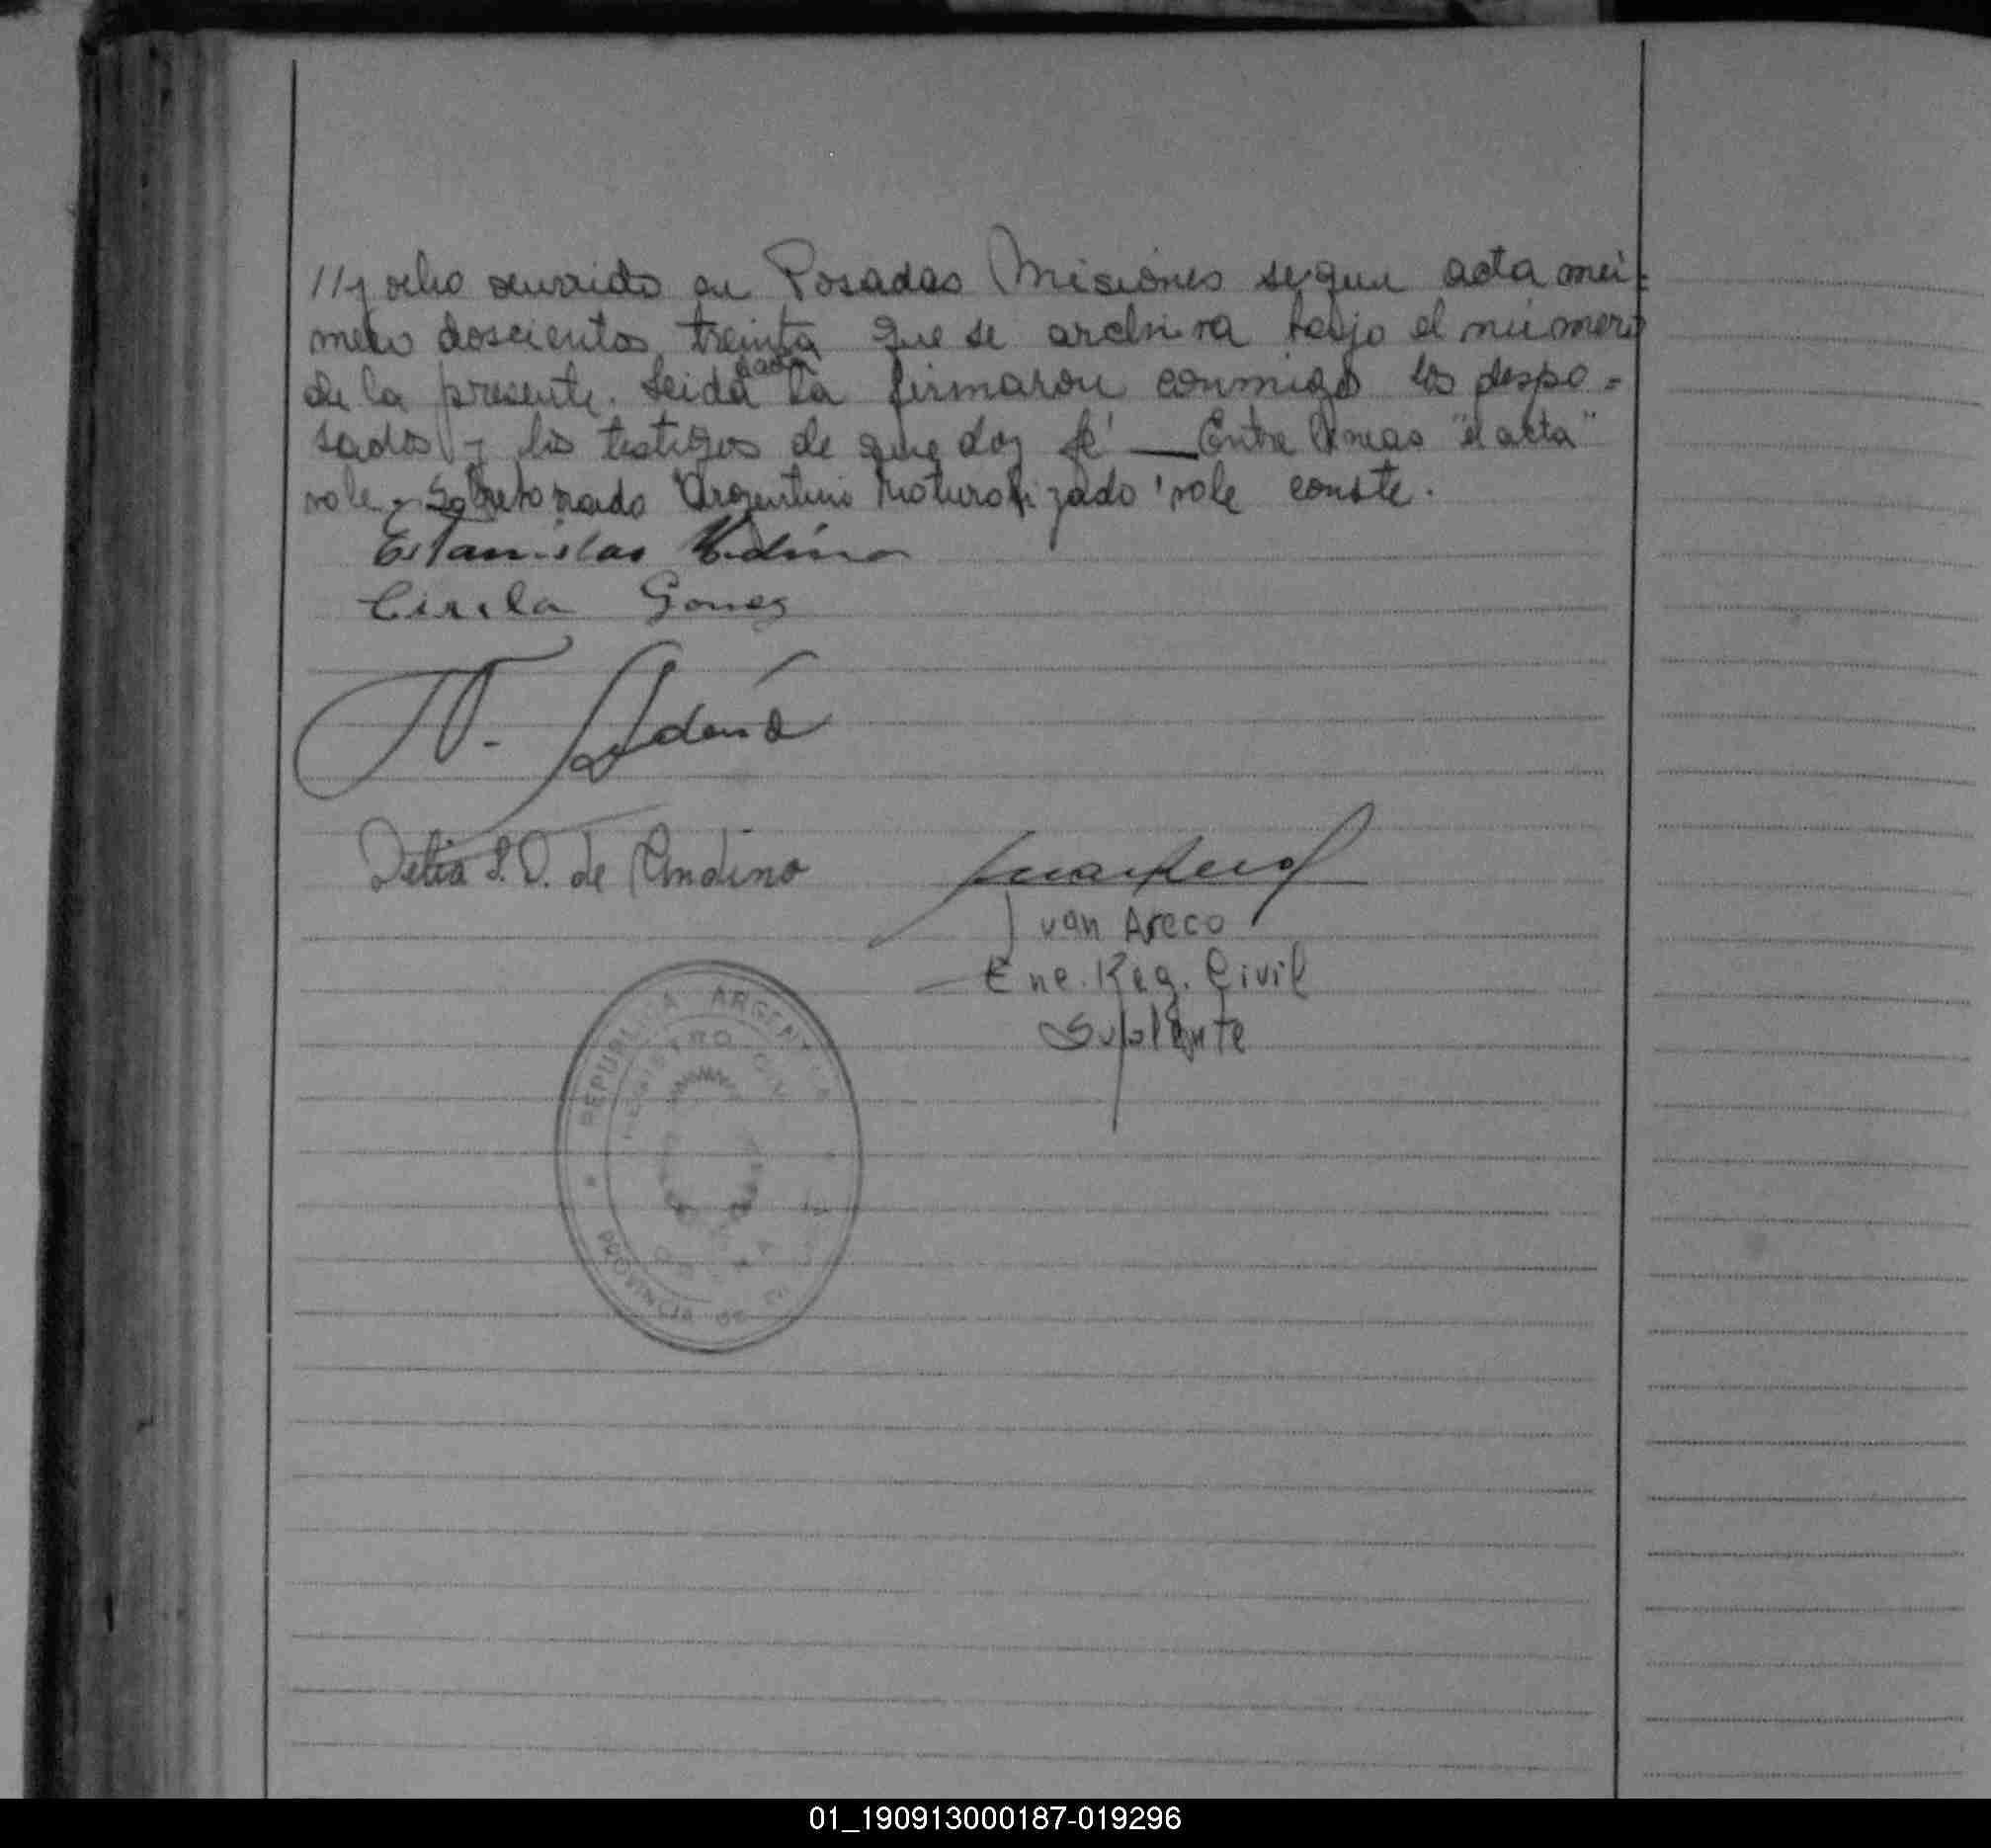 //y ocho ocurrido en Posadas Misiones segun acta nú=
mero doscientos treinta que se archiva bajo el número
de la presente. Leida el acta la firmaron conmigo los despo=
sados y los testigos de que doy fé — Entre lineas "el acta"
vale y Sobreborrado "Argentino Naturalizado" vale conste.
Estanislao
Cirila Gomez
Delia S. D. de Andino
Juan Areco
Enc. Reg. Civil
Suplente
REPUBLICA ARGENTINA
REGISTRO CIVIL
PROVINCIA DE
01_190913000187-019296